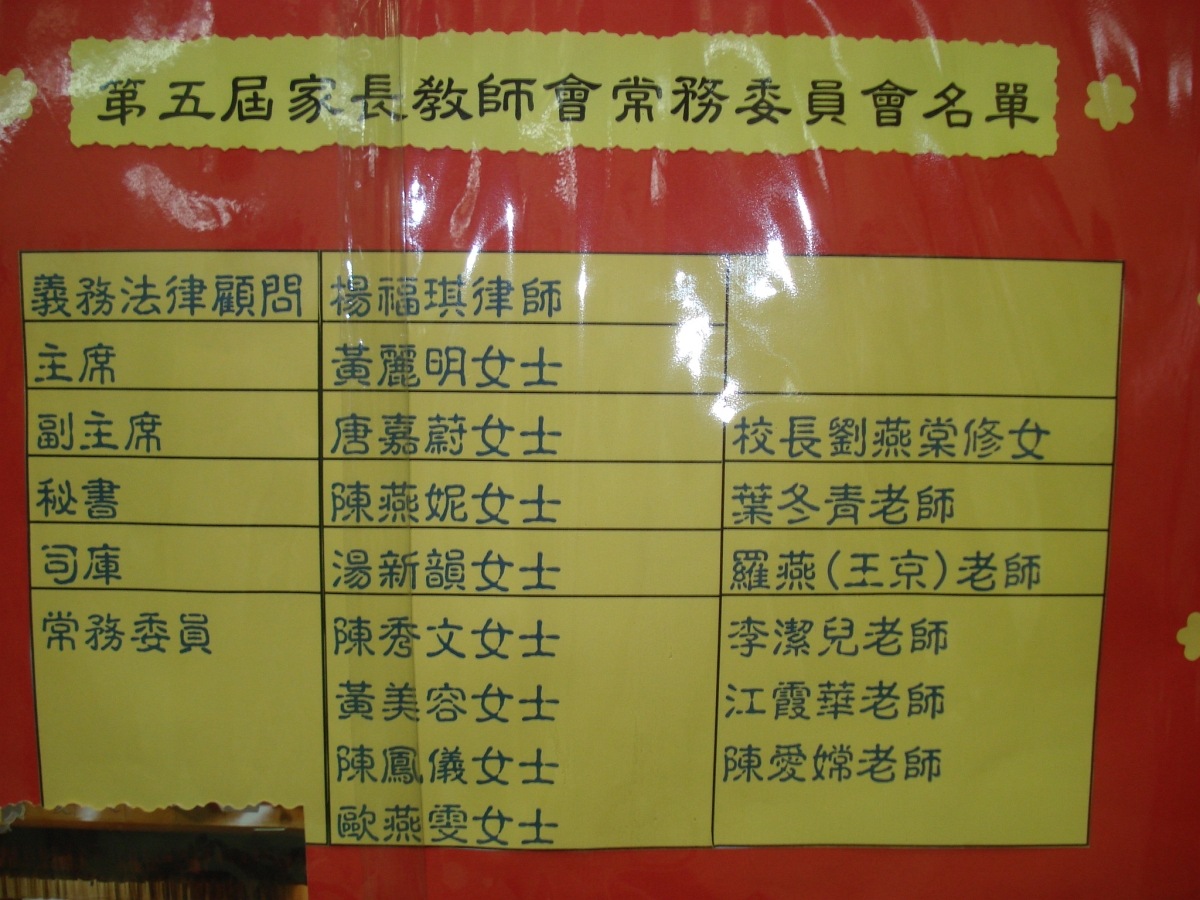 第五屆家長教師會常務委員會名單
義務法律顧問 楊福琪律師
主席 黃麗明女士
副主席 唐嘉蔚女士 校長劉燕棠修女
秘書 陳燕妮女士 葉冬青老師
司庫 湯新韻女士 羅燕(王京)老師
常務委員 陳秀文女士 李潔兒老師
黃美容女士 江霞華老師
陳鳳儀女士 陳愛嫦老師
歐燕雯女士